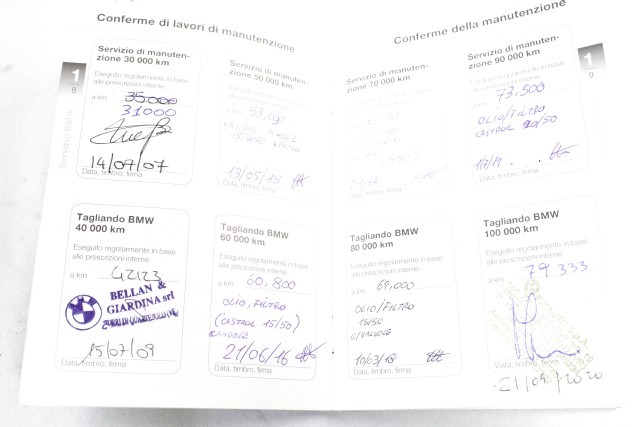 Conferme di lavori di manutenzione
1
8
Servizio BMW
Servizio di manuten-
zione 30 000 km
Eseguito regolarmente in base
alle prescrizioni interne
a km 35.000
31000
14/07/07
Data, timbro, firma
Servizio di manuten-
zione 50 000 km
Eseguito regolarmente in base
alle prescrizioni interne
a km
CASTROL
13/05/15
Data, timbro, firma
Tagliando BMW
40 000 km
Eseguito regolarmente in base
alle prescrizioni interne
a km 42123
BELLAN &
GIARDINA srl
15/07/09
Data, timbro, firma
Tagliando BMW
60 000 km
Eseguito regolarmente in base
alle prescrizioni interne
a km 60.800
OLIO, FILTRO
(CASTROL 15/50)
CANDELE
21/06/16
Data, timbro, firma
Conferme della manutenzione
1
9
Servizio di manuten-
zione 70 000 km
Servizio di manuten-
zione 90 000 km
Eseguito regolarmente in base
alle prescrizioni interne
a km 73.500
OLIO/FILTRO
CASTROL 20/50
1/7/19
Data, timbro, firma
Tagliando BMW
80 000 km
Eseguito regolarmente in base
alle prescrizioni interne
a km 69.000
OLIO/FILTRO
15/50
10/03/18
Data, timbro, firma
Tagliando BMW
100 000 km
Eseguito regolarmente in base
alle prescrizioni interne
a km 79333
Data, timbro, firma
21/09/2020